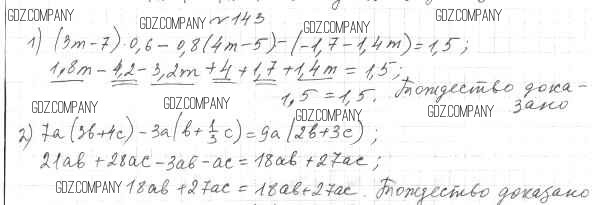 GDZ.COMPANY GDZ.COMPANY №143 GDZ.COMPANY
1) (3m-7)·0,6-0,8(4m-5)-(-1,7-1,4m)=1,5;
1,8m-4,2-3,2m+4+1,7+1,4m=1,5;
1,5=1,5. Тождество дока-
GDZ.COMPANY GDZ.COMPANY GDZ.COMPANY GDZ.COMPANY зано
2) 7a(3b+4c)-3a(b+1/3c)=9a(2b+3c);
21ab+28ac-3ab-ac=18ab+27ac;
GDZ.COMPANY 18ab+27ac=18ab+27ac. Тождество доказано